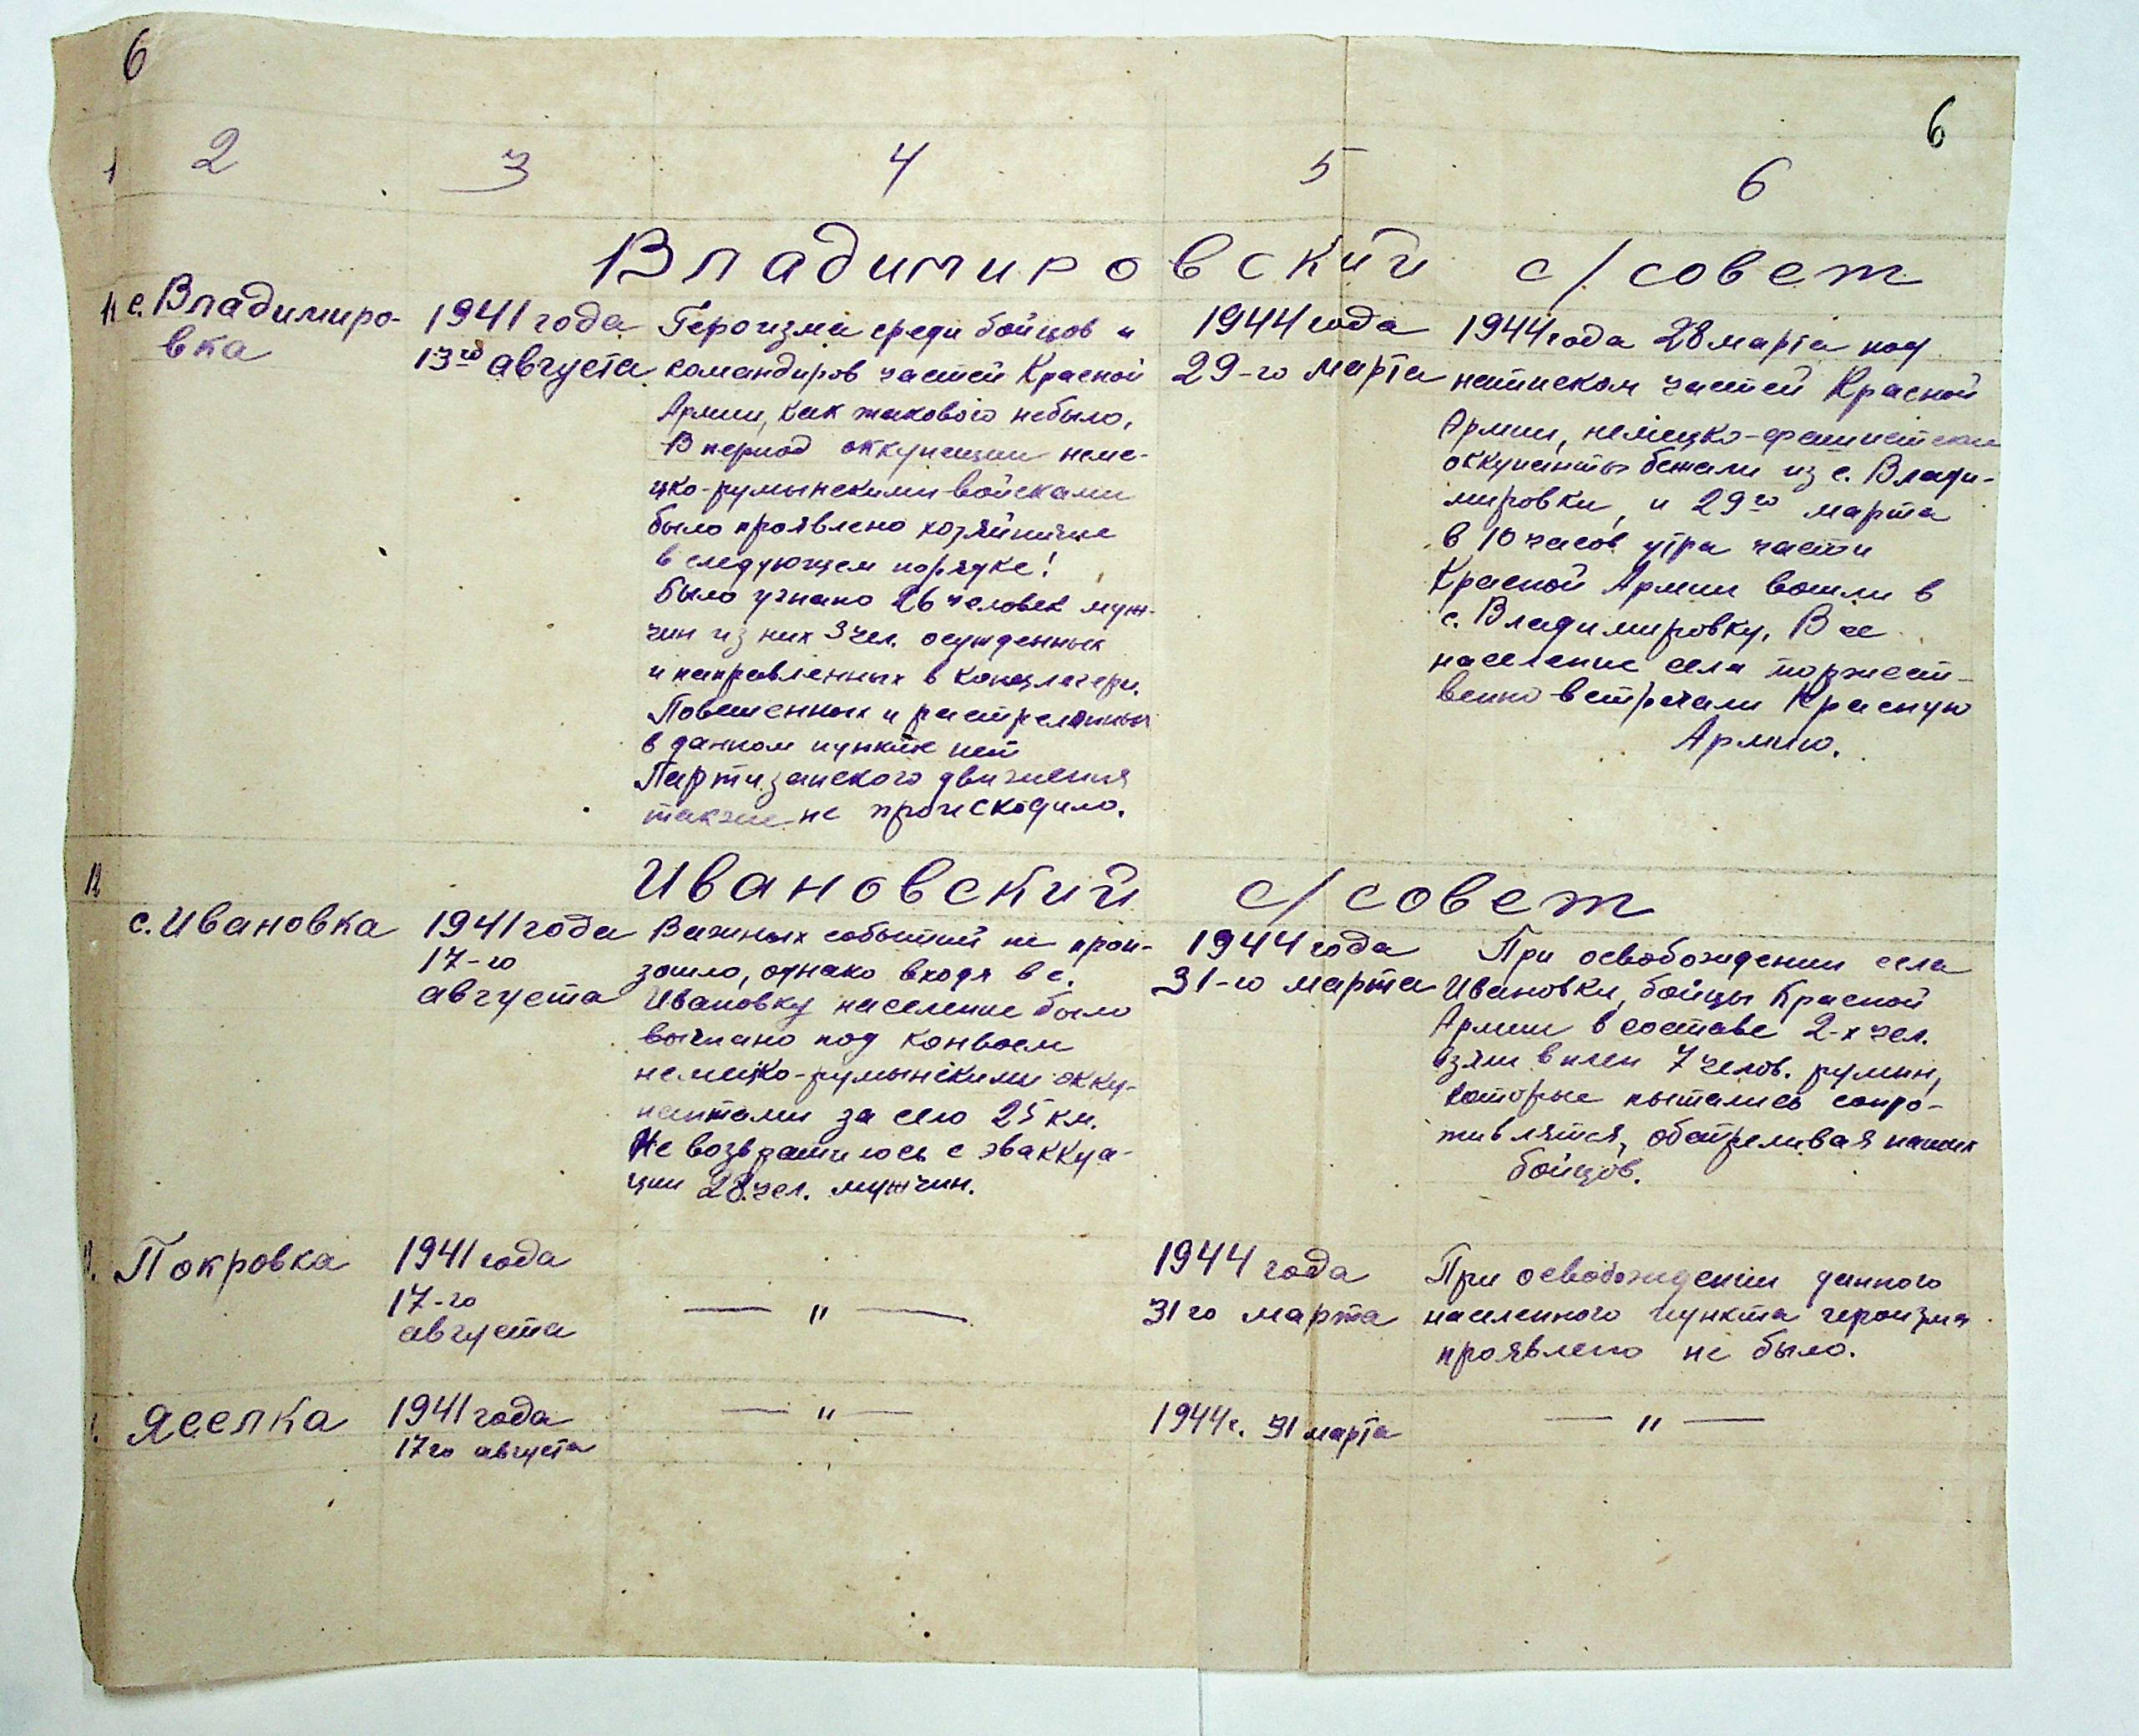 6
6
1 2 3 4 5 6
Владимировский с/совет
11 с. Владимиро-
вка
1941 года
13го августа
Героизма среди бойцов и
командиров частей Красной
Армии, как такового небыло.
В период оккупации неме-
цко-румынскими войсками
было проявлено хозяйничие
в следующем порядке!
было угнано 26 человек муж-
чин из них 3 чел. осужденных
и направленных в концлагери.
Повешенных и растрелянных
в данном пункте нет
Партизанского движения
также не происходило.
1944 года
29-го марта
1944 года 28 марта под
натиском частей Красной
Армии, немецко-фашистские
оккупанты бежали из с. Влади-
мировки, и 29го марта
в 10 часов утра части
Красной Армии вошли в
с. Владимировку. Все
население села торжест-
венно встречали Красную
Армию.
12
Ивановский с/совет
с. Ивановка
1941 года
17-го
августа
Важных событий не прои-
зошло, однако входя в с.
Ивановку население было
выгнано под конвоем
немецко-румынскими окку-
пантами за село 25 км.
Не возвратилось с эваккуа-
ции 28 чел. мужчин.
1944 года
31-го марта
При освобождении села
Ивановки, бойцы Красной
Армии в составе 2-х чел.
взяли в плен 7 челов. румын,
которые пытались сопро-
тивлятся, обстреливая наших
бойцов.
Покровка
1941 года
17-го
августа
— " —
1944 года
31го марта
При освобождении данного
населенного пункта героизма
проявлено не было.
Яселка
1941 года
17го августа
— " —
1944 г. 31 марта
— " —